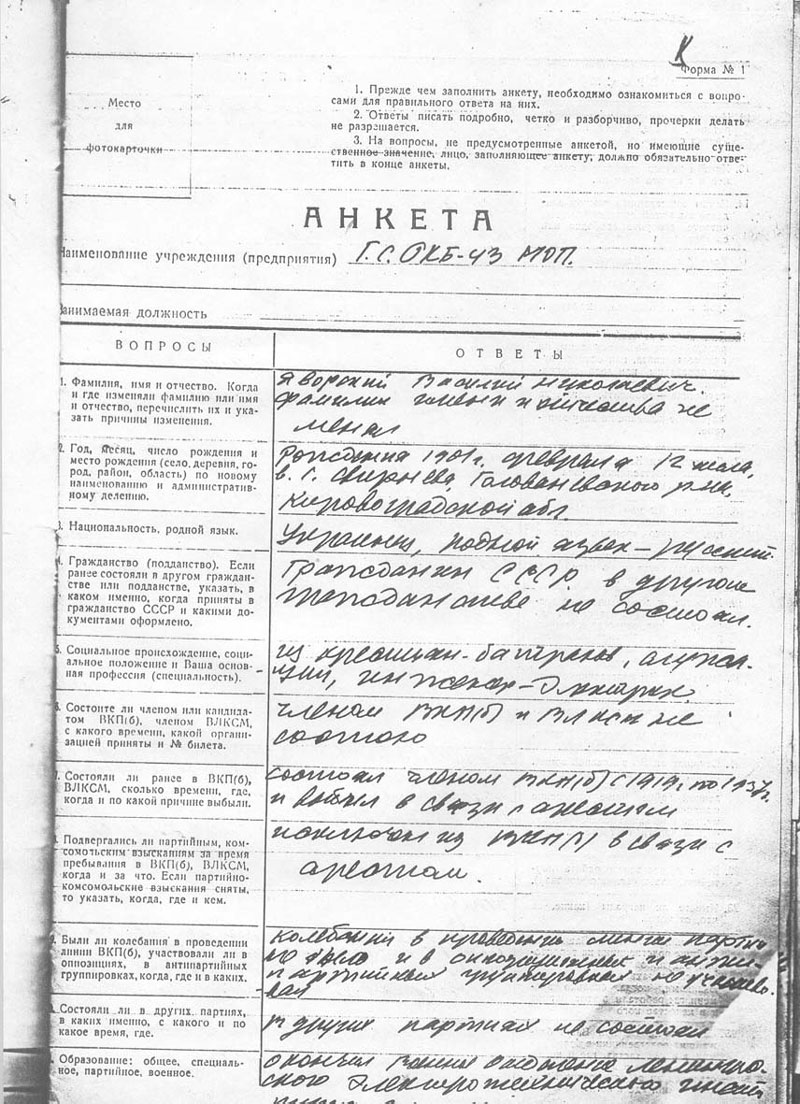 Форма № 1
Место
для
фотокарточки
1. Прежде чем заполнить анкету, необходимо ознакомиться с вопро-
сами для правильного ответа на них.
2. Ответы писать подробно, четко и разборчиво, прочерки делать
не разрешается.
3. На вопросы, не предусмотренные анкетой, но имеющие суще-
ственное значение, лицо, заполняющее анкету, должно обязательно отве-
тить в конце анкеты.
АНКЕТА
Наименование учреждения (предприятия) Г.С. ОКБ-43 МОП.
Занимаемая должность
ВОПРОСЫ
ОТВЕТЫ
1. Фамилия, имя и отчество. Когда
и где изменяли фамилию или имя
и отчество, перечислить их и ука-
зать причины изменения.
Яворский Василий Николаевич.
фамилии имени и отчества не
менял
2. Год, месяц, число рождения и
место рождения (село, деревня, го-
род, район, область) по новому
наименованию и административ-
ному делению.
Рождения 1901 г. февраля 12 числа,
в. г. Голованевского р-на,
Кировоградской обл.
3. Национальность, родной язык.
Украинец, родной язык – русский
4. Гражданство (подданство). Если
ранее состояли в другом граждан-
стве или подданстве, указать, в
каком именно, когда приняты в
гражданство СССР и какими до-
кументами оформлено.
Гражданин СССР. в другом
гражданстве не состоял.
5. Социальное происхождение, соци-
альное положение и Ваша основ-
ная профессия (специальность).
из крестьян-батраков,
инженер-электрик.
6. Состоите ли членом или кандида-
том ВКП(б), членом ВЛКСМ,
с какого времени, какой органи-
зацией приняты и № билета.
членом ВКП(б) и ВЛКСМ не
состою
7. Состояли ли ранее в ВКП(б),
ВЛКСМ, сколько времени, где,
когда и по какой причине выбыли.
состоял членом ВКП(б) с 1919 г. по 1937 г.
и выбыл в связи с арестом
Подвергались ли партийным, ком-
сомольским взысканиям за время
пребывания в ВКП(б), ВЛКСМ,
когда и за что. Если партийно-
комсомольские взыскания сняты,
то указать, когда, где и кем.
исключен из ВКП(б) в связи с
арестом.
Были ли колебания в проведении
линии ВКП(б), участвовали ли в
оппозициях, в антипартийных
группировках, когда, где и в каких.
колебаний в проведении линии партии
не было и в оппозициях и анти-
партийных группировках не участво-
вал
Состояли ли в других партиях,
в каких именно, с какого и по
какое время, где.
в других партиях не состоял
Образование: общее, специаль-
ное, партийное, военное.
окончил отделение Ленингра-
ского Электротехнического инсти